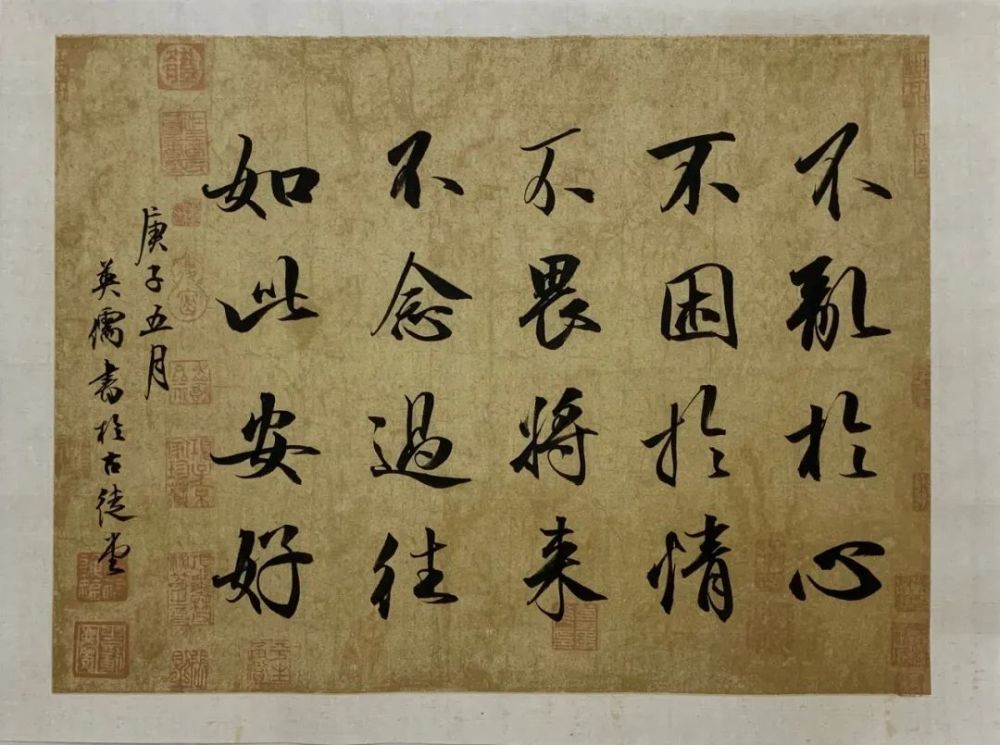 不亂於心
不困於情
不畏将来
不念過往
如此安好
庚子五月
英儒書於古堂